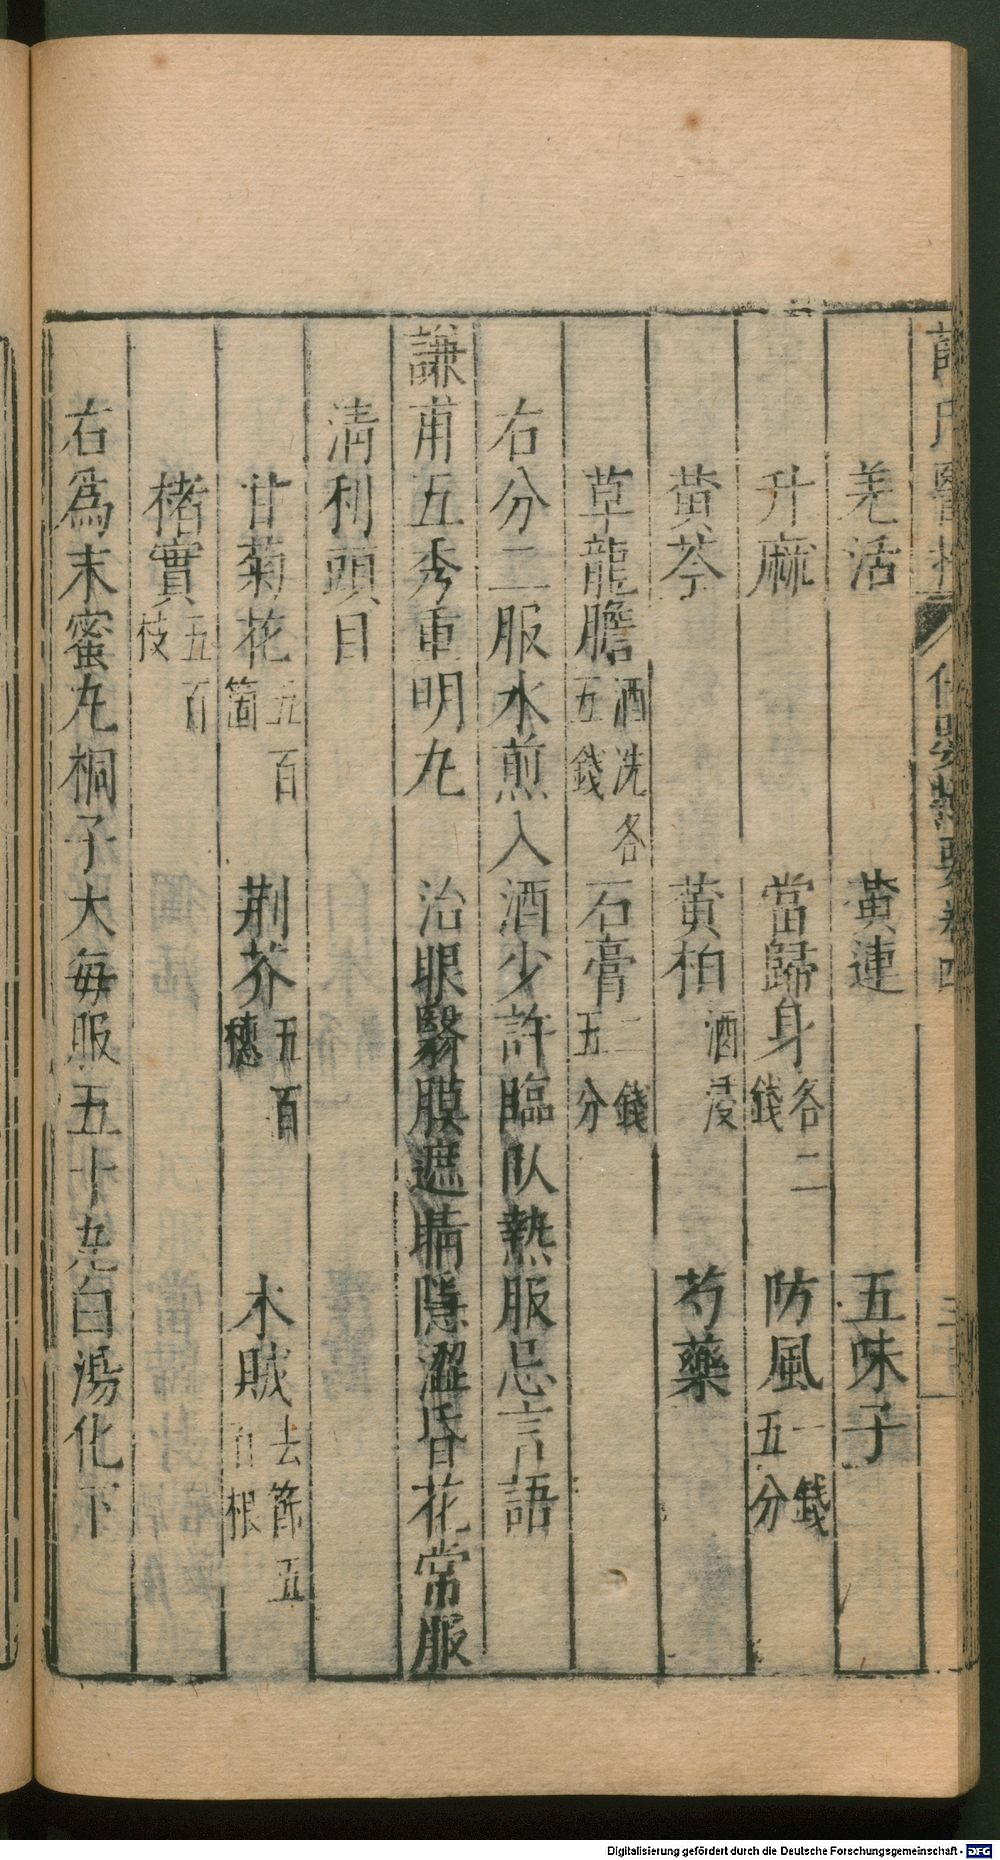 薛氏醫按 保嬰撮要卷四
羌活 黃連 五味子
升麻 當歸身各二錢 防風一錢五分
黄芩 黄柏酒浸 芍藥
草龍膽酒洗各五錢 石膏二錢五分
右分二服水煎入酒少許臨臥熱服忌言語
謙甫五秀重明丸 治眼翳膜遮睛隱澀昏花常服
清利頭目
甘菊花五百箇 荆芥五百穗 木賊去節五百根
楮實五百枝
右爲末蜜丸桐子大每服五十丸白湯化下
Digitalisierung gefördert durch die Deutsche Forschungsgemeinschaft - DFG